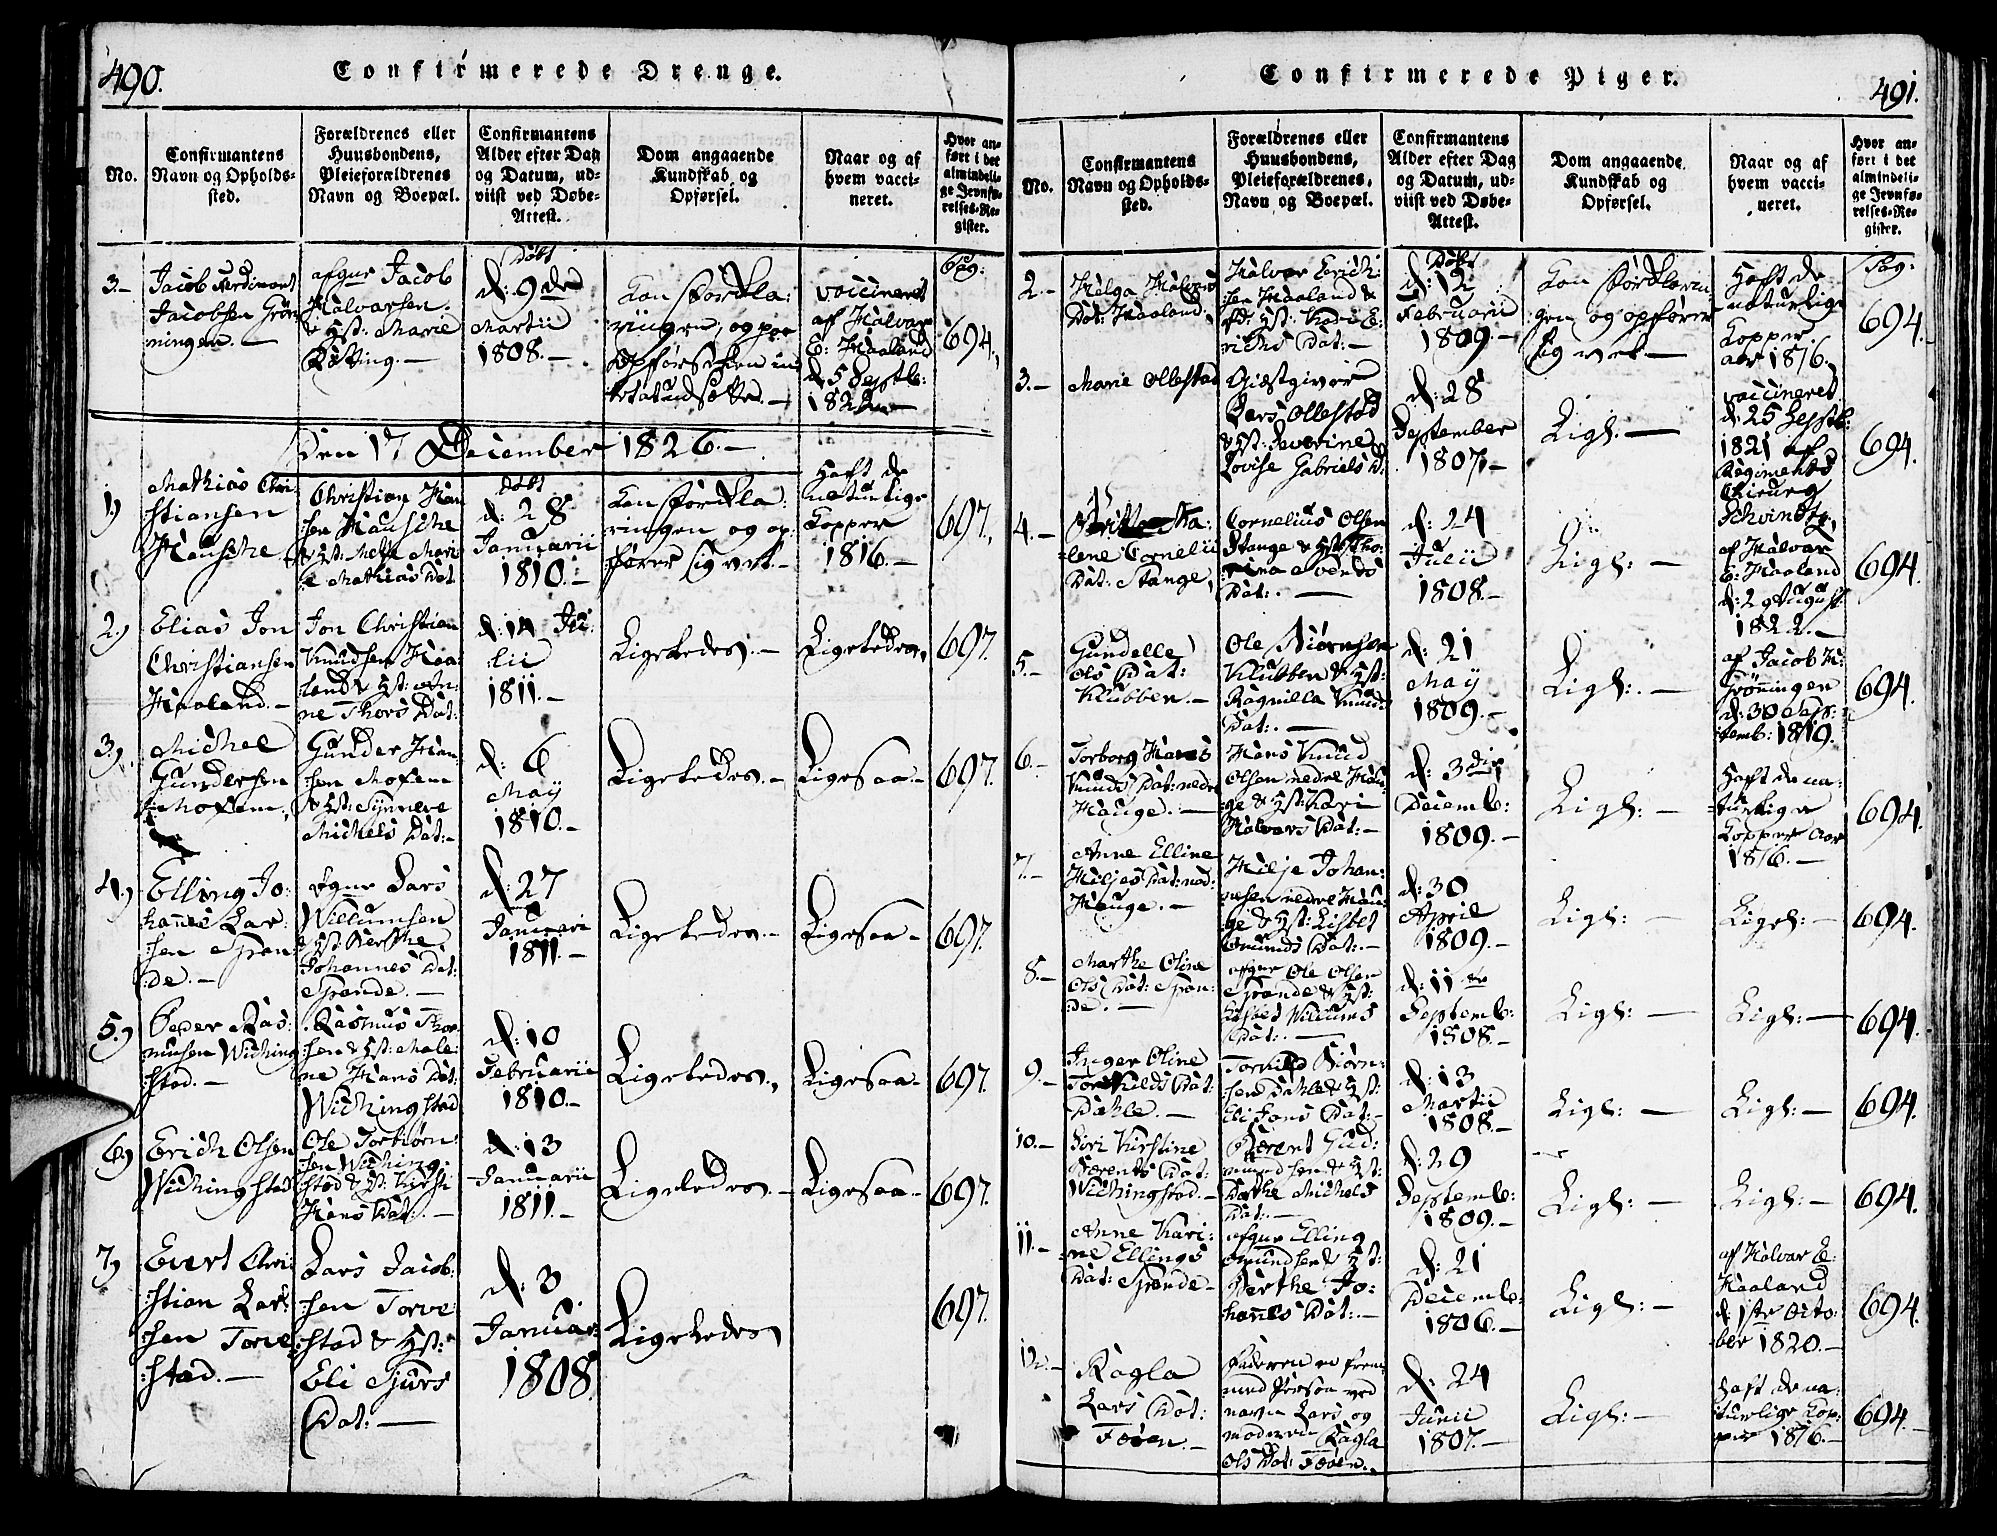 490.
Confirmerede Drenge.
No.
Confirmantens
Navn og Opholds-
sted.
Forældrenes eller
Huusbondens,
Pleieforældrenes
Navn og Boepæl.
Confirmantens
Alder efter Dag
og Datum, ud-
viist ved Døbe-
Attest.
Dom angaaende
Kundskab og
Opførsel.
Naar og af
hvem vacci-
neret.
Hvor an-
ført i det
almindeli-
ge Jevnfø-
relses-Re-
gister.
3.-
Jacob Ferdinant
Jacobsen Grøn
ningen. -
afgne Jacob
Halvorsen
& Hst: Marie
Døbt
d: 9de
Martii
1808. -
Kon forkla:
ringen, og paa
Opførselen in
tet at udsætte. -
vaccineret
af Halvor
E: Haaland
d: 5 Septb:
1822 -
Pag:
694.
Den 17 December 1826. -
1)
Mathias Chri-
stiansen
Hausche
Christian Han
sen Hausche
& Hst: Mette Mari
e Mathias Dat.
Døbt
d: 28
Januarii
1810. -
Kan forkla:
ringen og op:
fører sig vel. -
Haft de
naturlige
Kopper
1816. -
697.
2.)
Elias Jon
Christiansen
Haaland. -
Jon Christian
Knudsen Haa
land & Hst: An:
ne Thors Dat:
d: 14 Ju:
lii
1811. -
Ligeledes. -
Ligeledes.
697.
3.)
Michel
Gundersen
Mofem,
Gunder Han
sen Mofem
& Hst: Synneve
Michels Dat: -
d: 6
May
1810. -
Ligeledes. -
Ligesaa -
697.
4.)
Elling Jo:
hannes Lar:
sen Span
de. -
afgne Lars
Willumsen
& Hst: Berthe
Johannes Dat:
Spande. -
d: 27
Januari
1811. -
Ligeledes. -
Ligesaa -
697.
5.)
Peder Ras:
musen Wiching
stad. -
Rasmus Thor
sen & Hst: Male:
ne Hans Dat:
Wichingstad
d: 10
Februarii
1810. -
Ligeledes.
Ligesaa -
697.
6.)
Erich Olsen
Wichingstad
Ole Torbiørn:
sen Wiching:
stad & Hst: Kirsti
Hans Dat: -
d: 13
Januarii
1811. -
Ligeledes. -
Ligesaa -
697.
7)
Evert Chri:
stian Lar:
sen Torve
stad. -
Lars Jacob:
sen Torve:
stad & Hst:
Eli Sjurs
Dat: -
d: 3
Januar:
1808.
Ligeledes
697.
491.
Confirmerede Piger.
No.
Confirmantens
Navn og Opholds-
sted.
Forældrenes eller
Huusbondens,
Pleieforældrenes,
Navn og Boepæl.
Confirmantens
Alder efter Dag
og Datum, ud-
viist ved Døbe-
Attest.
Dom angaaende
Kundskab og
Opførsel.
Naar og af
hvem vacci-
neret.
Hvor an-
ført i det
almindeli-
ge Jevnfø-
relses-Re-
gister.
2.-
Helga Halvors
Dat: Haaland,
Halvor Erich:
sen Haaland &
Hst: Kari E:
richs Dat: -
Døbt
d: 12
Februarii
1809. -
Kan forklarin
gen og opfører
sig vel -
Haft de
naturlige
Kopper
aar 1816.
Pag:
694.
3.-
Marie Ollestad
Giæstgiver
Lars Ollestad
& Hst: Severine
Lovise Gabriels D:
d: 28
September
1807. -
Ligl. -
vaccineret
d: 25 Septb:
1821 af
Regiments
Chirurg
Schvindt,
694.
4.-
lene Cornelii
Dat: Stange,
Cornelius Olsen
Stange & Hst: Tho:
rina Svends
Dat: -
d: 24
Julii
1808. -
Ligl: -
af Halvor
E: Haaland
d: 29 August
1822. -
694.
5.-
Gundelle
Ols Dat:
Klubben. -
Ole Biørnsen
Klubben & Hst:
Ragnilla Knuds
Dat: -
d: 21
May
1809. -
Ligl: -
af Jacob H:
Grønningen
d: 30 Sep:
temb: 1819.
694.
6.-
Torborg Hans
Knuds Dat: nedre
Hauge. -
Hans Knud
Olsen nedre Hau
ge & Hst: Kari
Halvors Dat: -
d: 3die
Decemb:
1809. -
Ligl: -
Haft de na:
turlige
Kopper Aar
1816. -
694.
7.-
Anne Elline
Hiljes Dat: ned:
Hauge. -
Hilje Johan:
nesen nedre Hau
ge & Hst: Lisbet
Omunds Dat: -
d: 30
April
1809. -
Ligl: -
Ligel: -
694.
8.-
Marthe Oline
Ols Dat: Span:
de. -
afgne Ole Olsen
Spande & Hst:
Lisbet Willums
Dat: -
d: 11te
Septemb:
1808. -
Ligl: -
Ligl: -
694.
9.-
Inger Oline
Torkilds Dat:
Dahle. -
Torkild Biørn:
sen Dahle & Hst:
Eli Jons Dat: -
d: 13
Martii
1808. -
Ligl: -
Ligl: -
694.
10.-
Siri Kirstine
Berents Dat:
Wichingstad. -
Berent Gud:
mundsen & Hst:
Dorthe Michels
Dat: -
d: 29
Septemb:
1809. -
Ligl: -
Ligl: -
694.
11.-
Anne Kari:
ne Ellings
Dat: Spande -
afgne Elling
Omundsen & Hst:
Berthe Jo:
hannes Dat: -
d: 21
Decemb:
1806. -
Ligl: -
af Halvor E:
Haaland
d: 1ste Octo:
ber 1820. -
694.
12.-
Ragla
Lars Dat:
Føien. -
Faderen en frem
med Person ved
navn Lars og
moderen Ragla
Ols Dat: Føien. -
d: 24
Junii
1807. -
Ligl: -
Haft de na:
turlige Kop:
per 1816. -
694.